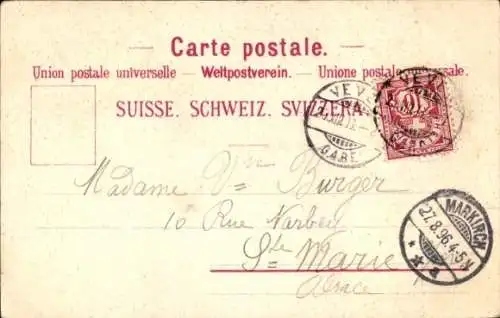 Carte postale.
Union postale universelle – Weltpostverein. – Unione postale universale.
SUISSE. SCHWEIZ. SVIZZERA.
VEVEY
GARE
10
Madame Vve Burger
10 Rue Narbey
Ste Marie
Alsace
MARKIRCH
27.8.96.4-5N.
* * a